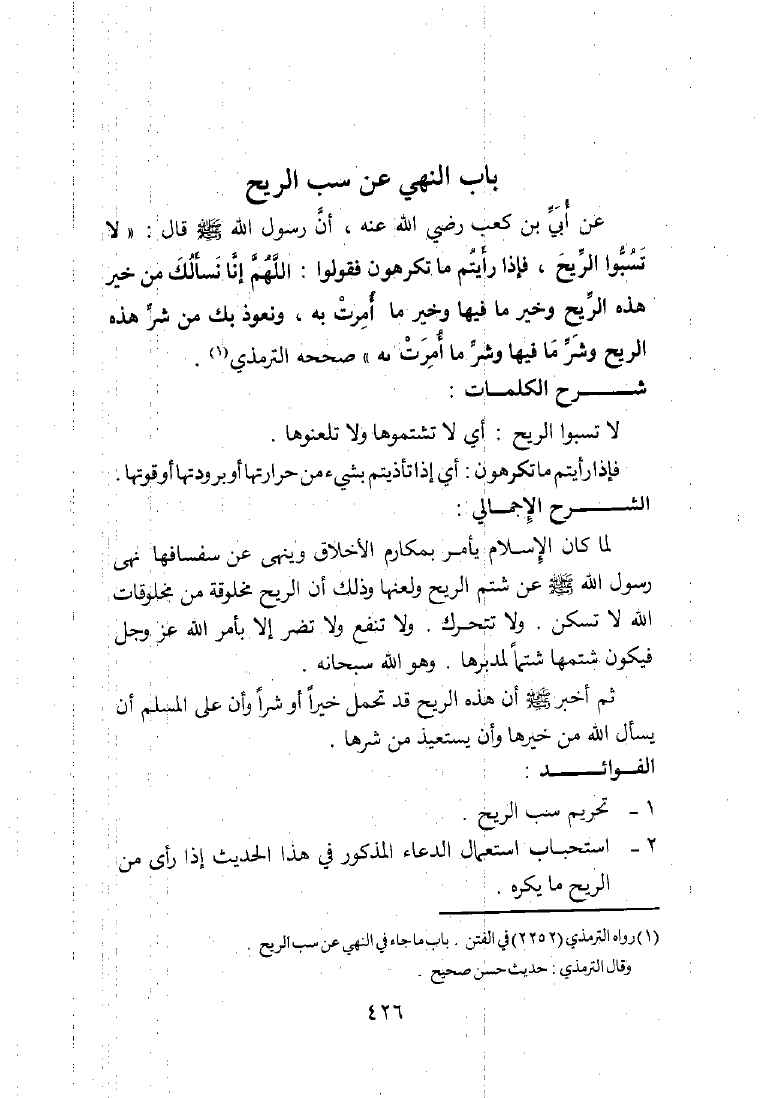 باب النهي عن سب الريح
عن أُبَيِّ بن كعب رضي الله عنه ، أنَّ رسول الله ﷺ قال : « لا
تَسُبُّوا الرِّيحَ ، فإذا رأَيتُم ما تكرهون فقولوا : اللَّهُمَّ إنَّا نَسألُكَ من خير
هذه الرِّيح وخير ما فيها وخير ما أُمِرتْ به ، ونعوذ بك من شرِّ هذه
الريح وشَرِّ مَا فيها وشرِّ ما أُمِرَتْ به » صححه الترمذي(١) .
شرح الكلمات :
لا تسبوا الريح : أي لا تشتموها ولا تلعنوها .
فإذا رأيتم ما تكرهون : أي إذا تأذيتم بشيء من حرارتها أو برودتها أو قوتها .
الشرح الإجمالي :
لما كان الإسلام يأمر بمكارم الأخلاق وينهى عن سفسافها نهى
رسول الله ﷺ عن شتم الريح ولعنها وذلك أن الريح مخلوقة من مخلوقات
الله لا تسكن . ولا تتحرك . ولا تنفع ولا تضر إلا بأمر الله عز وجل
فيكون شتمها شتماً لمدبرها . وهو الله سبحانه .
ثم أخبر ﷺ أن هذه الريح قد تحمل خيراً أو شراً وأن على المسلم أن
يسأل الله من خيرها وأن يستعيذ من شرها .
الفوائد :
١ - تحريم سب الريح .
٢ - استحباب استعمال الدعاء المذكور في هذا الحديث إذا رأى من
الريح ما يكره .
(١) رواه الترمذي (٢٢٥٢) في الفتن . باب ما جاء في النهي عن سب الريح .
وقال الترمذي : حديث حسن صحيح .
٤٢٦